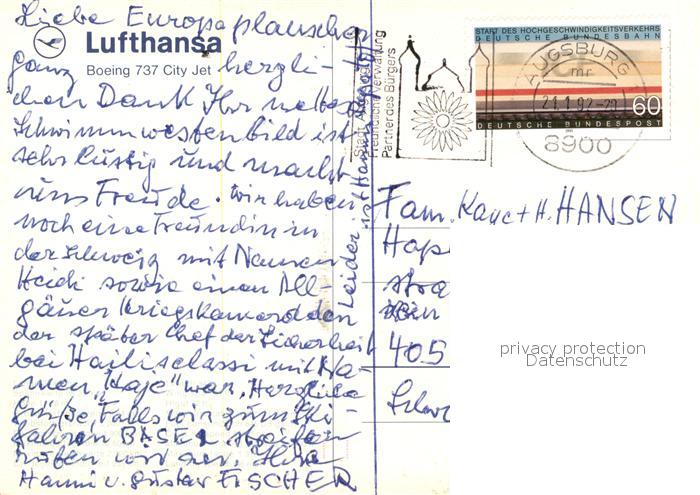 Liebe Europaplauscher
Lufthansa
Boeing 737 City Jet
ganz herzli-
chen Dank Ihr nettes
Schwimmwestenbild ist
sehr lustig und macht
uns Freude. Wir haben
noch eine Freundin in
der Schweiz mit Namen
Heidi sowie einen All-
gäuer Kriegskameraden
der später Chef der Sicherheit
bei Haile Selassi mit Na-
men "Kaje" war. Herzliche
Grüße, Falls wir zum Ski-
fahren BASEL streifen
rufen wir an. Ihre
Hanni u. Gustav FISCHER
Leider ist Hanni
Partner des Bürgers
START DES HOCHGESCHWINDIGKEITSVERKEHRS
DEUTSCHE BUNDESBAHN
60
DEUTSCHE BUNDESPOST
AUGSBURG 1
mr
21.1.92-20
8900
Fam. K. u. H. HANSEN
405
privacy protection
Datenschutz